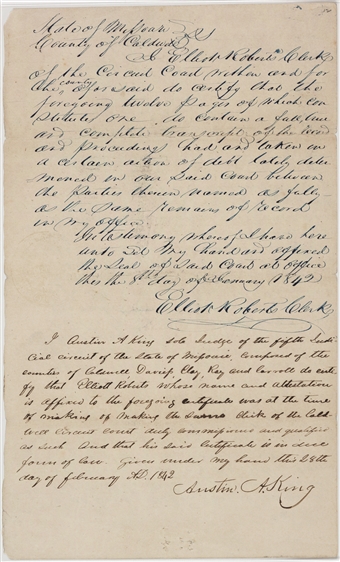 State of Missouri
County of Caldwell
I Elliott Roberts Clerk
of the Circuit Court within and for
the county aforesaid do certify that the
foregoing twelve pages of which con
stitutes one do contain a full true
and complete transcript of the record
and proceedings had and taken in
a certain action of debt lately deter
mined in our said Court between
the Parties therein named as fully
as the same remains of record
in my office
In testimony whereof I have here
unto set my hand and affixed
the seal of said Court at office
this the 8th day of January 1842
Elliott Roberts Clerk
I Austin A King sole Judge of the fifth Judi
cial circuit of the State of Missouri, composed of the
counties of Caldwell Daviess, Clay, Ray and Carroll do certi
fy that Elliott Roberts whose name and attestation
is affixed to the foregoing certificate was at the time
of making of making the same Clerk of the Cald
well Circuit court duly commissioned and qualified
as such And that his said Certificate is in due
form of law. Given under my hand this 28th
day of february A.D. 1842
Austin A. King